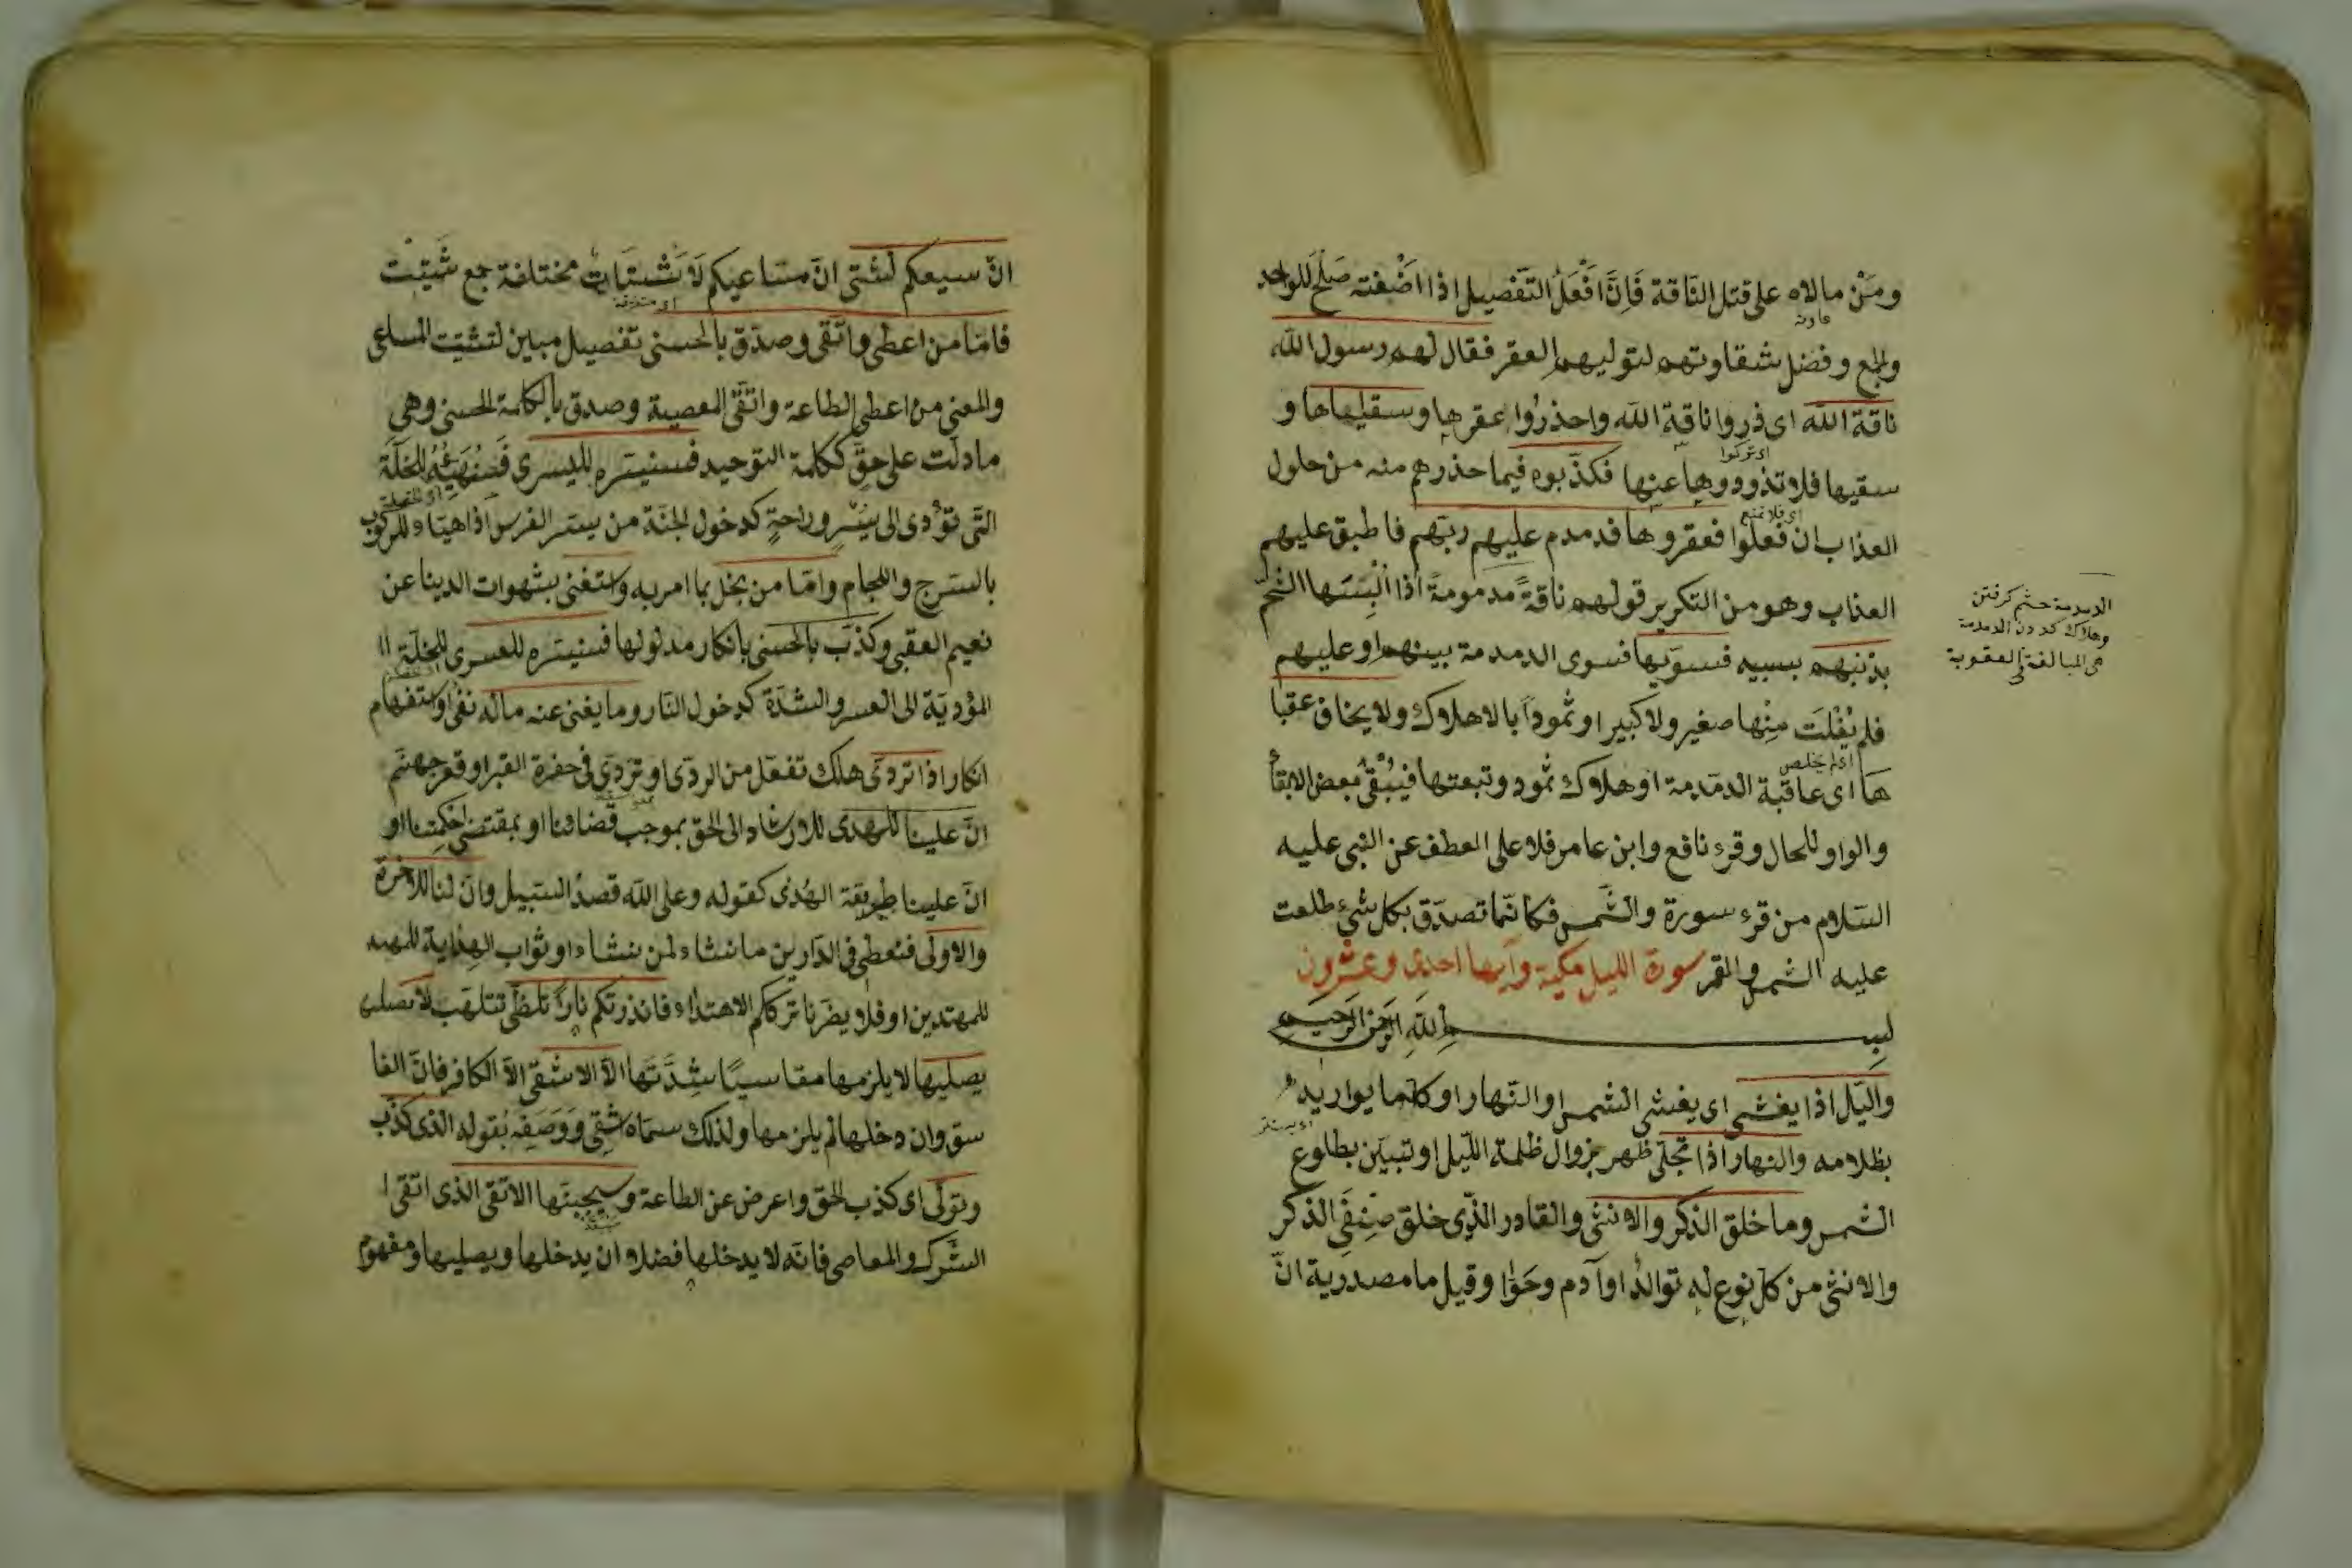 ومن مالاه على قتل الناقة فان افعل التفضيل اذا اضفته صلح للواحد
عاونه
والجمع وفضل شقاوتهم لتوليهم العقر فقال لهم رسول الله
ناقة الله اى ذروا ناقة الله واحذروا عقرها وسقياها و
اى تركوا
سقيها فلا تذودوها عنها فكذبوه فيما حذرهم منه من حلول
اى فلا تمنع
العذاب ان فعلوا فعقروها فدمدم عليهم ربهم فاطبق عليهم
العذاب وهو من التكرير قولهم ناقة مدمومة اذا البسها الشحم
بذنبهم بسببه فسويها فسوى الدمدمة بينهم او عليهم
فلم يفلت منها صغير ولا كبير او ثمود بالاهلاك ولا يخاف عقبا
اى لم يخلص
ها اى عاقبة الدمدمة او هلاك ثمود وتبعتها فيبقى بعض الابقاء
والواو للحال وقرء نافع وابن عامر فلا على العطف عن النبى عليه
السلام من قرء سورة والشمس فكانما تصدق بكل شئ طلعت
عليه الشمس والقمر سورة الليل مكية وآيها احدى وعشرون
بسم الله الرحمن الرحيم
والليل اذا يغشى اى يغشى الشمس او النهار او كلما يواريه
بظلامه والنهار اذا تجلى ظهر بزوال ظلمة الليل او تبين بطلوع
الشمس وما خلق الذكر والانثى والقادر الذى خلق صنفى الذكر
والانثى من كل نوع له توالد او آدم وحوا وقيل ما مصدرية ان
الدمدمة خشم كرفتن
وهلاك كردن الدمدمة
هى المبالغة فى العقوبة
ان سعيكم لشتى ان مساعيكم لاشتات مختلفة جمع شتيت
اى متفرقة
فاما من اعطى واتقى وصدق بالحسنى تفصيل مبين لتشتت المساعى
والمعنى من اعطى الطاعة واتقى المعصية وصدق بالكلمة الحسنى وهى
ما دلت على حق ككلمة التوحيد فسنيسره لليسرى فسنهيئه للخلة
التى تؤدى الى يسر وراحة كدخول الجنة من يسر الفرس اذا هياء للركوب
بالسرج واللجام واما من بخل بما امر به واستغنى بشهوات الدينا عن
نعيم العقبى وكذب بالحسنى بانكار مدلولها فسنيسره للعسرى للخلة
المؤدية الى العسر والشدة كدخول النار وما يغنى عنه ماله نفى او استفهام
انكار اذا تردى هلك تفعل من الردى او تردى فى حفرة القبر او قعر جهنم
ان علينا للهدى للارشاد الى الحق بموجب قضائنا او بمقتضى حكمتنا او
ان علينا طريقة الهدى كقوله وعلى الله قصد السبيل وان لنا للاخرة
والاولى فنعطى فى الدارين ما نشاء لمن نشاء او ثواب الهداية للمهتد
للمهتدين او فلا يضرنا ترككم الاهتداء فانذرتكم نارا تلظى تتلهب لا يصلى
يصليها لا يلزمها مقاسيا شدتها الا الاشقى الا الكافر فان الفا
سق وان دخلها لم يلزمها ولذلك سماه شقى ووصفه بقوله الذى كذب
وتولى اى كذب الحق واعرض عن الطاعة وسيجنبها الاتقى الذى اتقى
الشرك والمعاصى فانه لا يدخلها فضلا ان يدخلها ويصليها ومفهوم